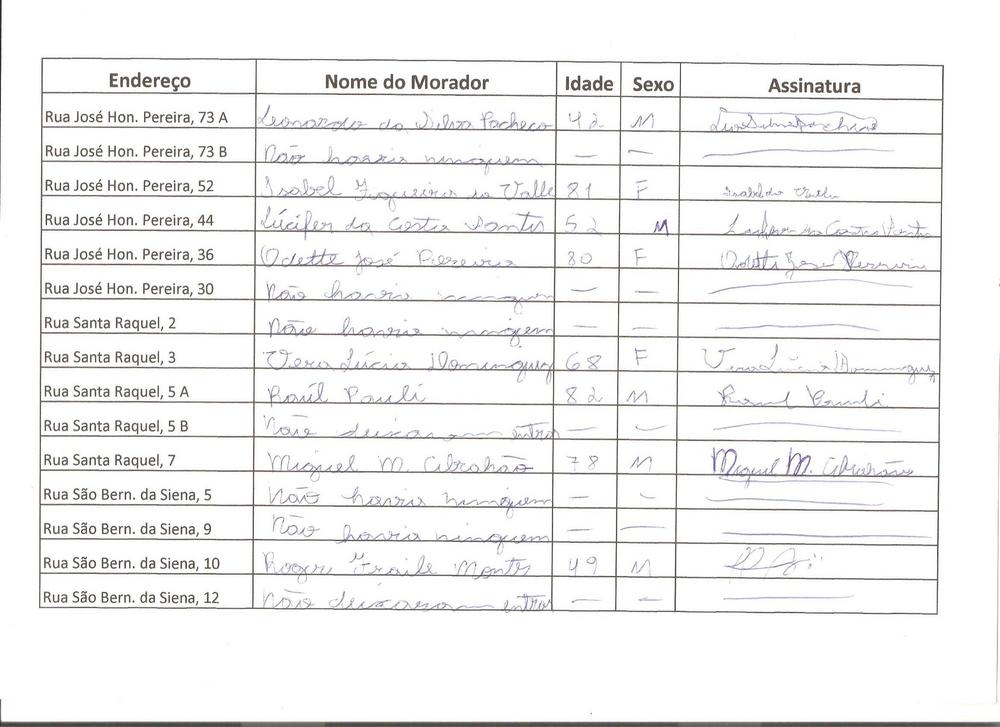 Endereço Nome do Morador Idade Sexo Assinatura
Rua José Hon. Pereira, 73 A Leonardo da Silva Pacheco 42 M
Rua José Hon. Pereira, 73 B Não havia ninguem — —
Rua José Hon. Pereira, 52 Isabel Figueira do Valle 81 F Isabel do Valle
Rua José Hon. Pereira, 44 Lúcifer da Costa Santis 52 M Lucifer da Costa Santis
Rua José Hon. Pereira, 36 Odette José Pereira 80 F Odette José Pereira
Rua José Hon. Pereira, 30 Não havia ninguem — —
Rua Santa Raquel, 2 Não havia ninguem — —
Rua Santa Raquel, 3 Vera Lúcia Dominguez 68 F Vera Lúcia Dominguez
Rua Santa Raquel, 5 A Raúl Pauli 82 M Raul Pauli
Rua Santa Raquel, 5 B Não deixaram entrar — —
Rua Santa Raquel, 7 Miguel M. Abrahão 78 M Miguel M. Abrahão
Rua São Bern. da Siena, 5 Não havia ninguem — —
Rua São Bern. da Siena, 9 Não havia ninguem — —
Rua São Bern. da Siena, 10 Roger Fraile Montes 49 M
Rua São Bern. da Siena, 12 Não deixaram entrar — —